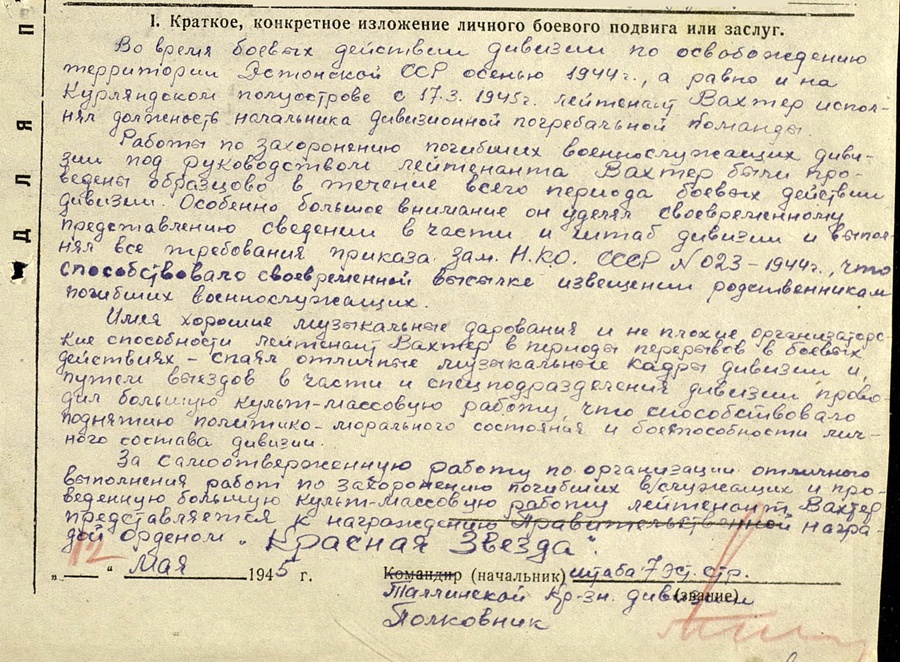 ДЛЯ П
I. Краткое, конкретное изложение личного боевого подвига или заслуг.
Во время боевых действии дивизии по освобождению
территории Эстонской ССР осенью 1944 г., а равно и на
Курляндском полуострове с 17.3. 1945 г. лейтенант Вахтер испол-
нял должность начальника дивизионной погребальной команды.
Работы по захоронению погибших военнослужащих диви-
зии под руководством лейтенанта Вахтер были про-
ведены образцово в течение всего периода боевых действии
дивизии. Особенно большое внимание он уделял своевременному
представлению сведении в части и штаб дивизии и выпол-
нял все требования приказа Зам. Н.К.О. СССР N 023 – 1944 г., что
способствовало своевременной высылке извещении родственникам
погибших военнослужащих.
Имея хорошие музыкальные дарования и не плохие организаторс-
кие способности лейтенант Вахтер в периоды перерывов в боевых
действиях – спаял отличные музыкальные кадры дивизии и,
путем выездов в части и спецподразделения дивизии, прово-
дил большую культ-массовую работу, что способствовало
поднятию политико-морального состояния и боеспособности лич-
ного состава дивизии.
За самоотверженную работу по организации отличного
выполнения работ по захоронению погибших в/служащих и про-
веденную большую культ-массовую работу лейтенант Вахтер
представляется к награждению Правительственной награ-
дой орденом „Красная Звезда".
„12" Мая 1945 г. Командир (начальник) штаба 7 эст. стр.
Таллинской Кр-зн. дивизии (звание)
Полковник